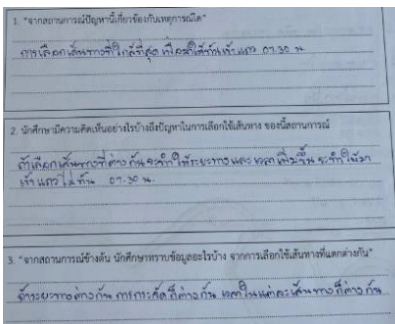 1. "จากสถานการณ์ปัญหานี้เกี่ยวข้องกับเหตุการณ์ใด"
การเลือกเส้นทางที่ใกล้ที่สุด เพื่อให้ทันเข้าแถว 07.30 น
2. นักศึกษามีความคิดเห็นอย่างไรบ้างถึงปัญหาในการเลือกใช้เส้นทาง ของนี้สถานการณ์
ถ้าเลือกเส้นทางที่ต่างกันจะทำให้ระยะทางและเวลาเพิ่มขึ้น จะทำให้มา
เข้าแถวไม่ทัน 07.30 น.
3. "จากสถานการณ์ข้างต้น นักศึกษาทราบข้อมูลอะไรบ้าง จากการเลือกใช้เส้นทางที่แตกต่างกัน"
ถ้าระยะทางต่างกัน การกระจัดก็ต่างกัน เวลาในแต่ละเส้นทางก็ต่างกัน